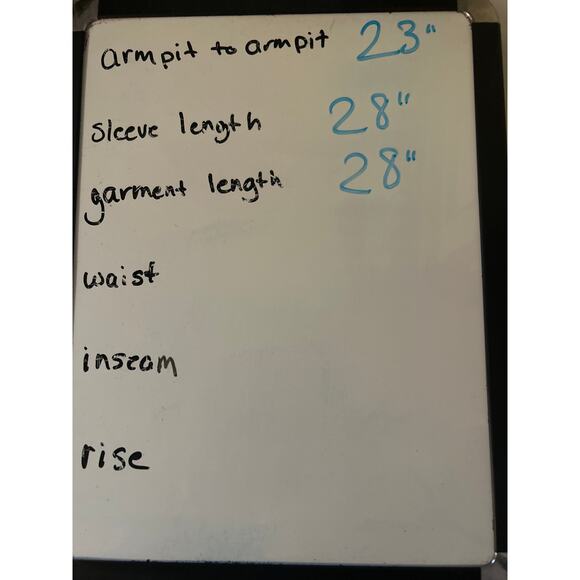 armpit to armpit 23"
sleeve length 28"
garment length 28"
waist
inseam
rise